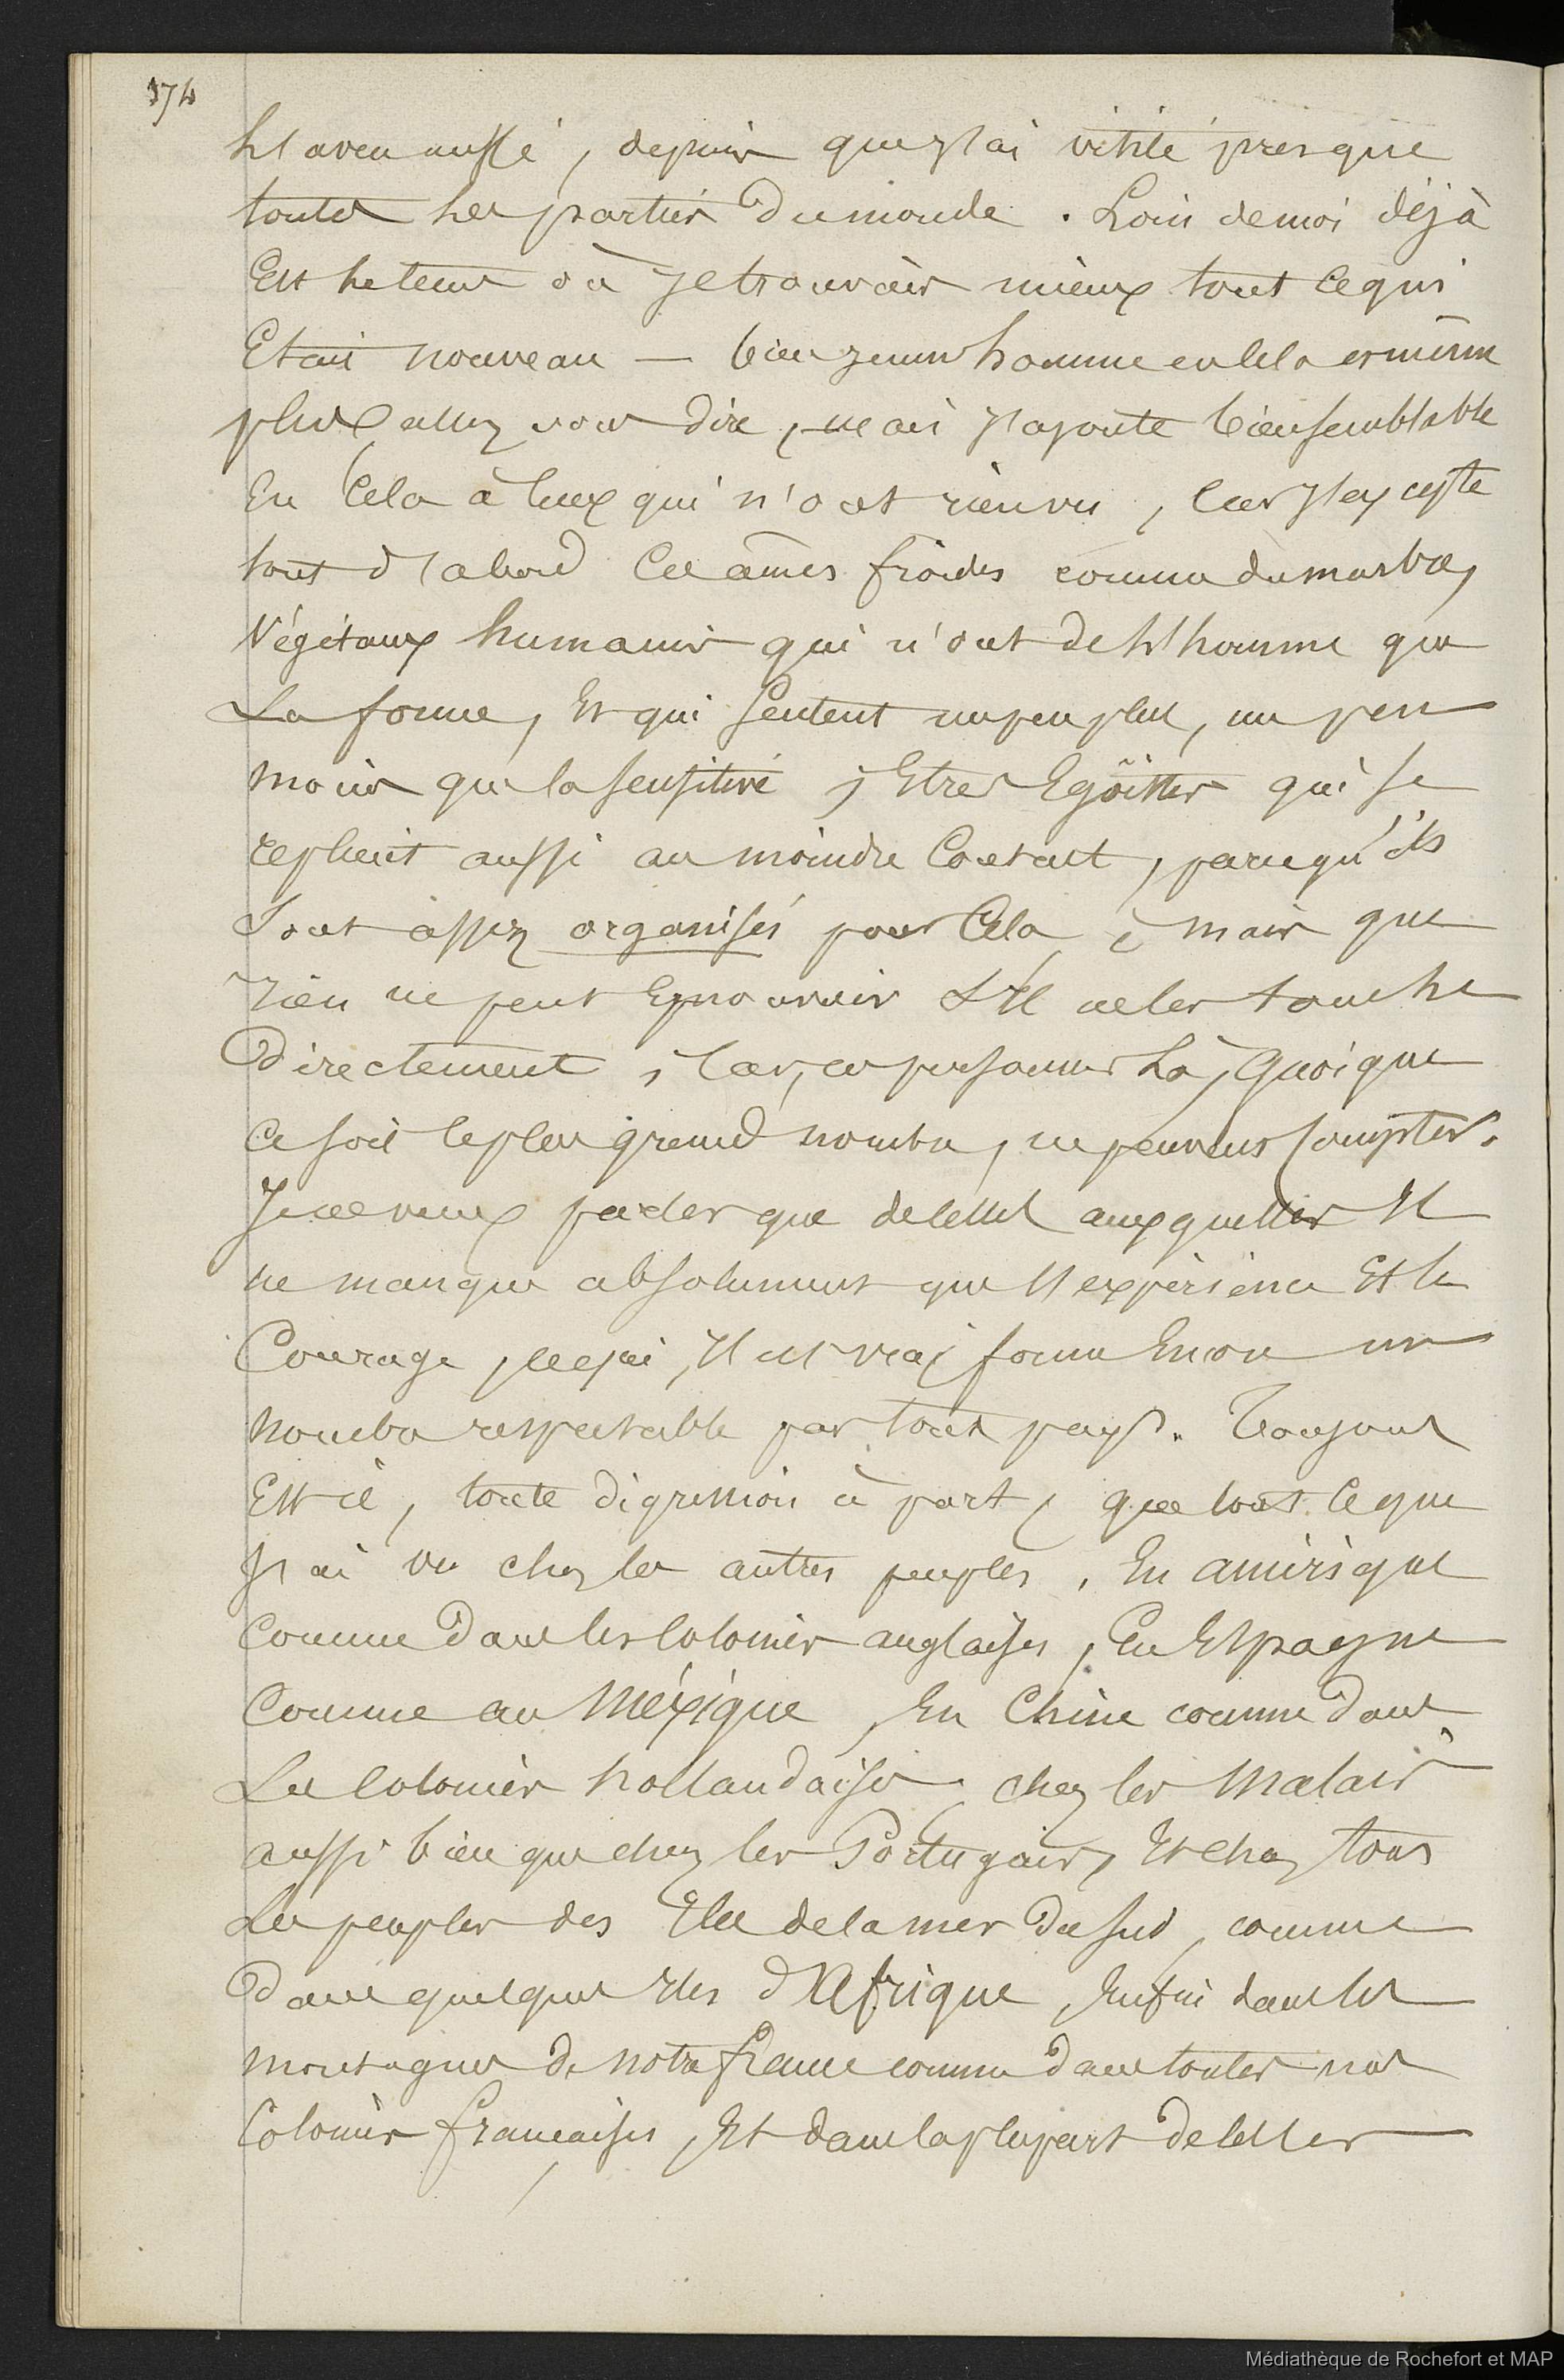 374
L'aveu aussi, depuis que j'ai visité presque
toutes les parties du monde. Loin de moi déjà
Est le tems où je trouvais mieux tout ce qui
Etait nouveau — bien jeune homme en cela et même
plus allez vous dire, mais j'ajoute bien semblable
En cela à ceux qui n'ont rien vu, car j'excepte
tout d'abord ces âmes froides comme du marbre,
Végétaux humains qui n'ont de l'homme que
La forme, Et qui sentent un peu plus, un peu
moins que la sensitive, Etres Egoïstes qui se
replient aussi au moindre Contact, parcequ'ils
Sont assez organisés pour Cela, mais que
rien ne peut Emouvoir s'il ne les touche
Directement, Car, ces personnes là, quoique
ce soit le plus grand nombre, ne peuvent compter.
Je ne veux parler que de celles auxquelles Il
ne manque absolument que l'expérience Et le
Courage, ce qui, Il est vrai forme Encore un
nombre respectable par tout pays. Toujours
Est-ce, toute digression à part, que tout ce que
J'ai vu chez les autres peuples, En amérique
Comme dans les Colonies anglaises, En Espagne
Comme au Méxique, En Chine comme dans
Les Colonies hollandaises, chez les Malais
aussi bien que chez les Portugais, Et chez tous
Les peuples des Iles de la mer du sud, comme
Dans quelques Iles d'Afrique, Enfin dans les
montagnes de notre france comme dans toutes nos
Colonies françaises, Et dans la plupart de celles
Médiathèque de Rochefort et MAP